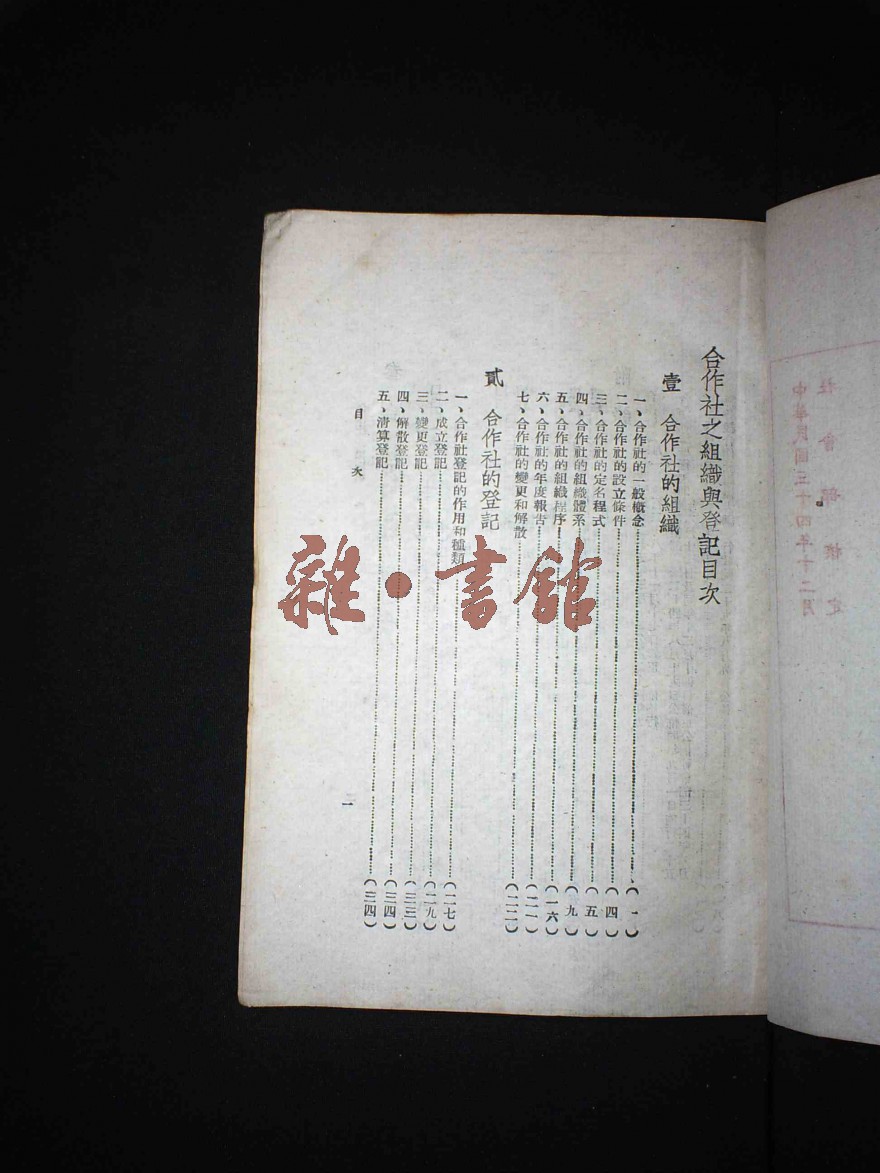 社會部核定
中華民國三十四年十二月
合作社之組織與登記目次
壹 合作社的組織
一、合作社的一般概念(一)
二、合作社的設立條件(四)
三、合作社的定名程式(五)
四、合作社的組織體系(九)
五、合作社的組織程序(一六)
六、合作社的年度報告(二一)
七、合作社的變更和解散(二二)
貳 合作社的登記
一、合作社登記的作用和種類(二七)
二、成立登記(二九)
三、變更登記(三三)
四、解散登記(三四)
五、清算登記(三四)
目次
一
雜·書館